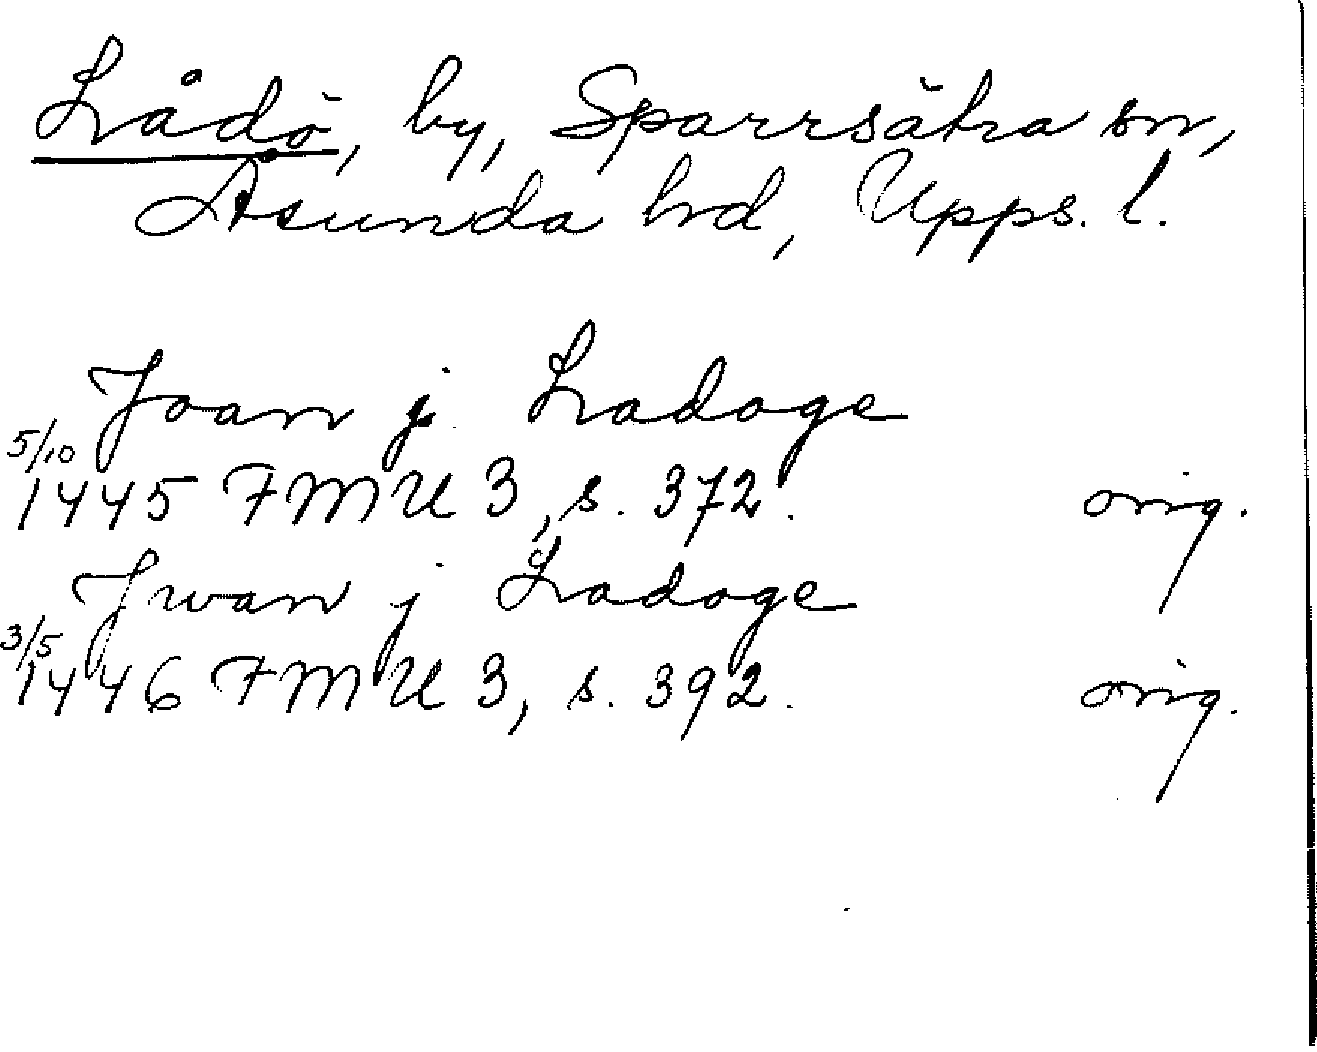 Lådö, by, Sparrsätra sn,
Åsunda hd, Upps. l.
Joan j Ladoge
5/10
1445 FMU 3, s. 372. orig.
Jwan j Ladoge
3/5
1446 FMU 3, s. 392. orig.